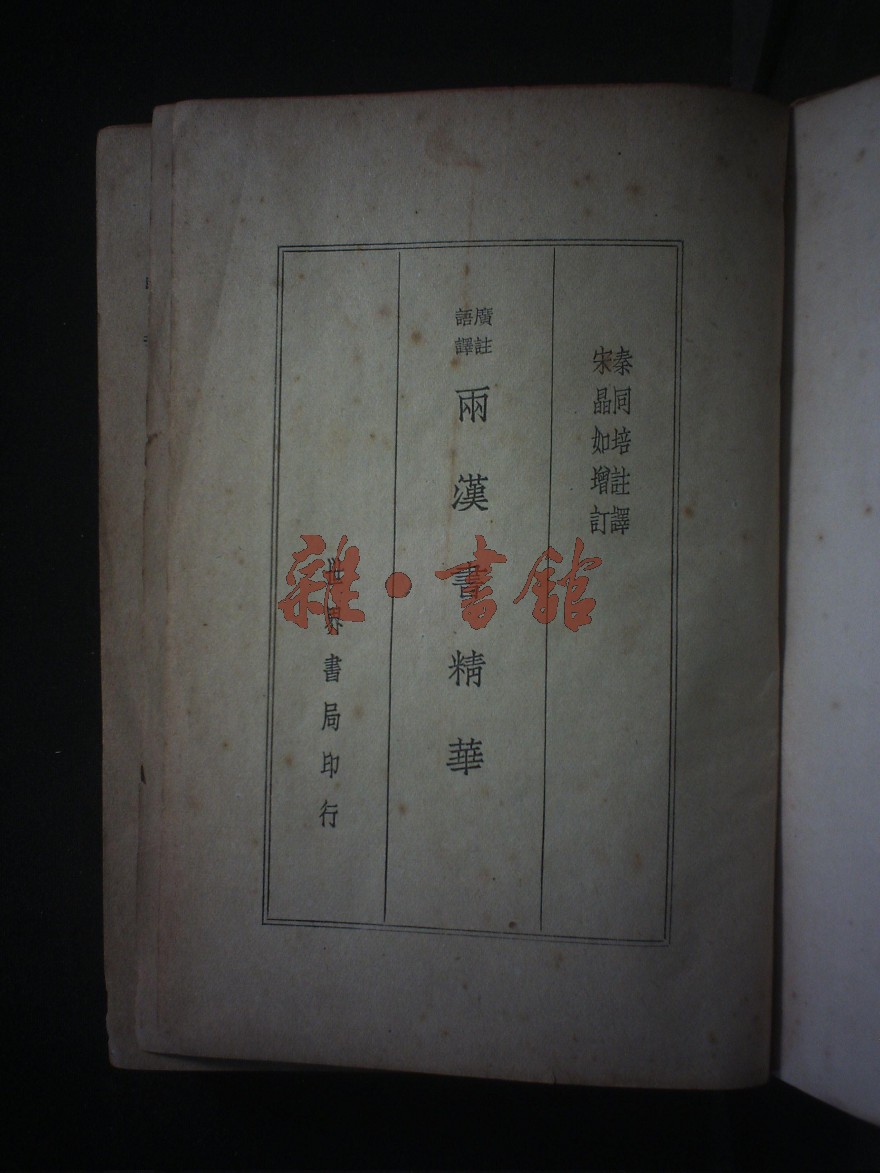 秦同培註譯
宋晶如增訂
廣註
語譯
兩漢書精華
世界書局印行
雜·書館